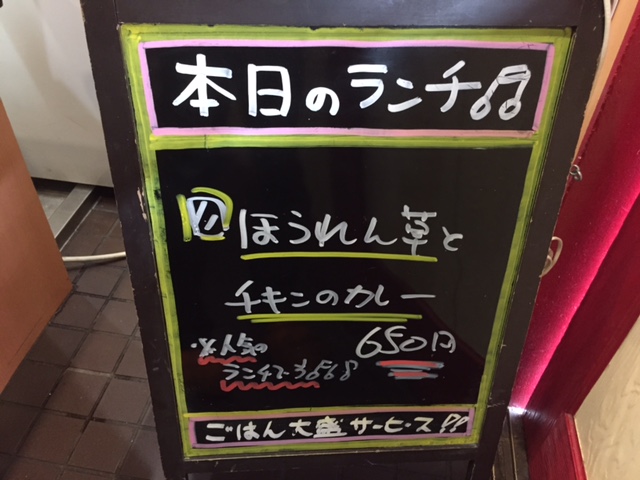 本日のランチ♫
ほうれん草と
チキンのカレー
・大人気の
ランチです!!
650円
ごはん大盛サービス!!